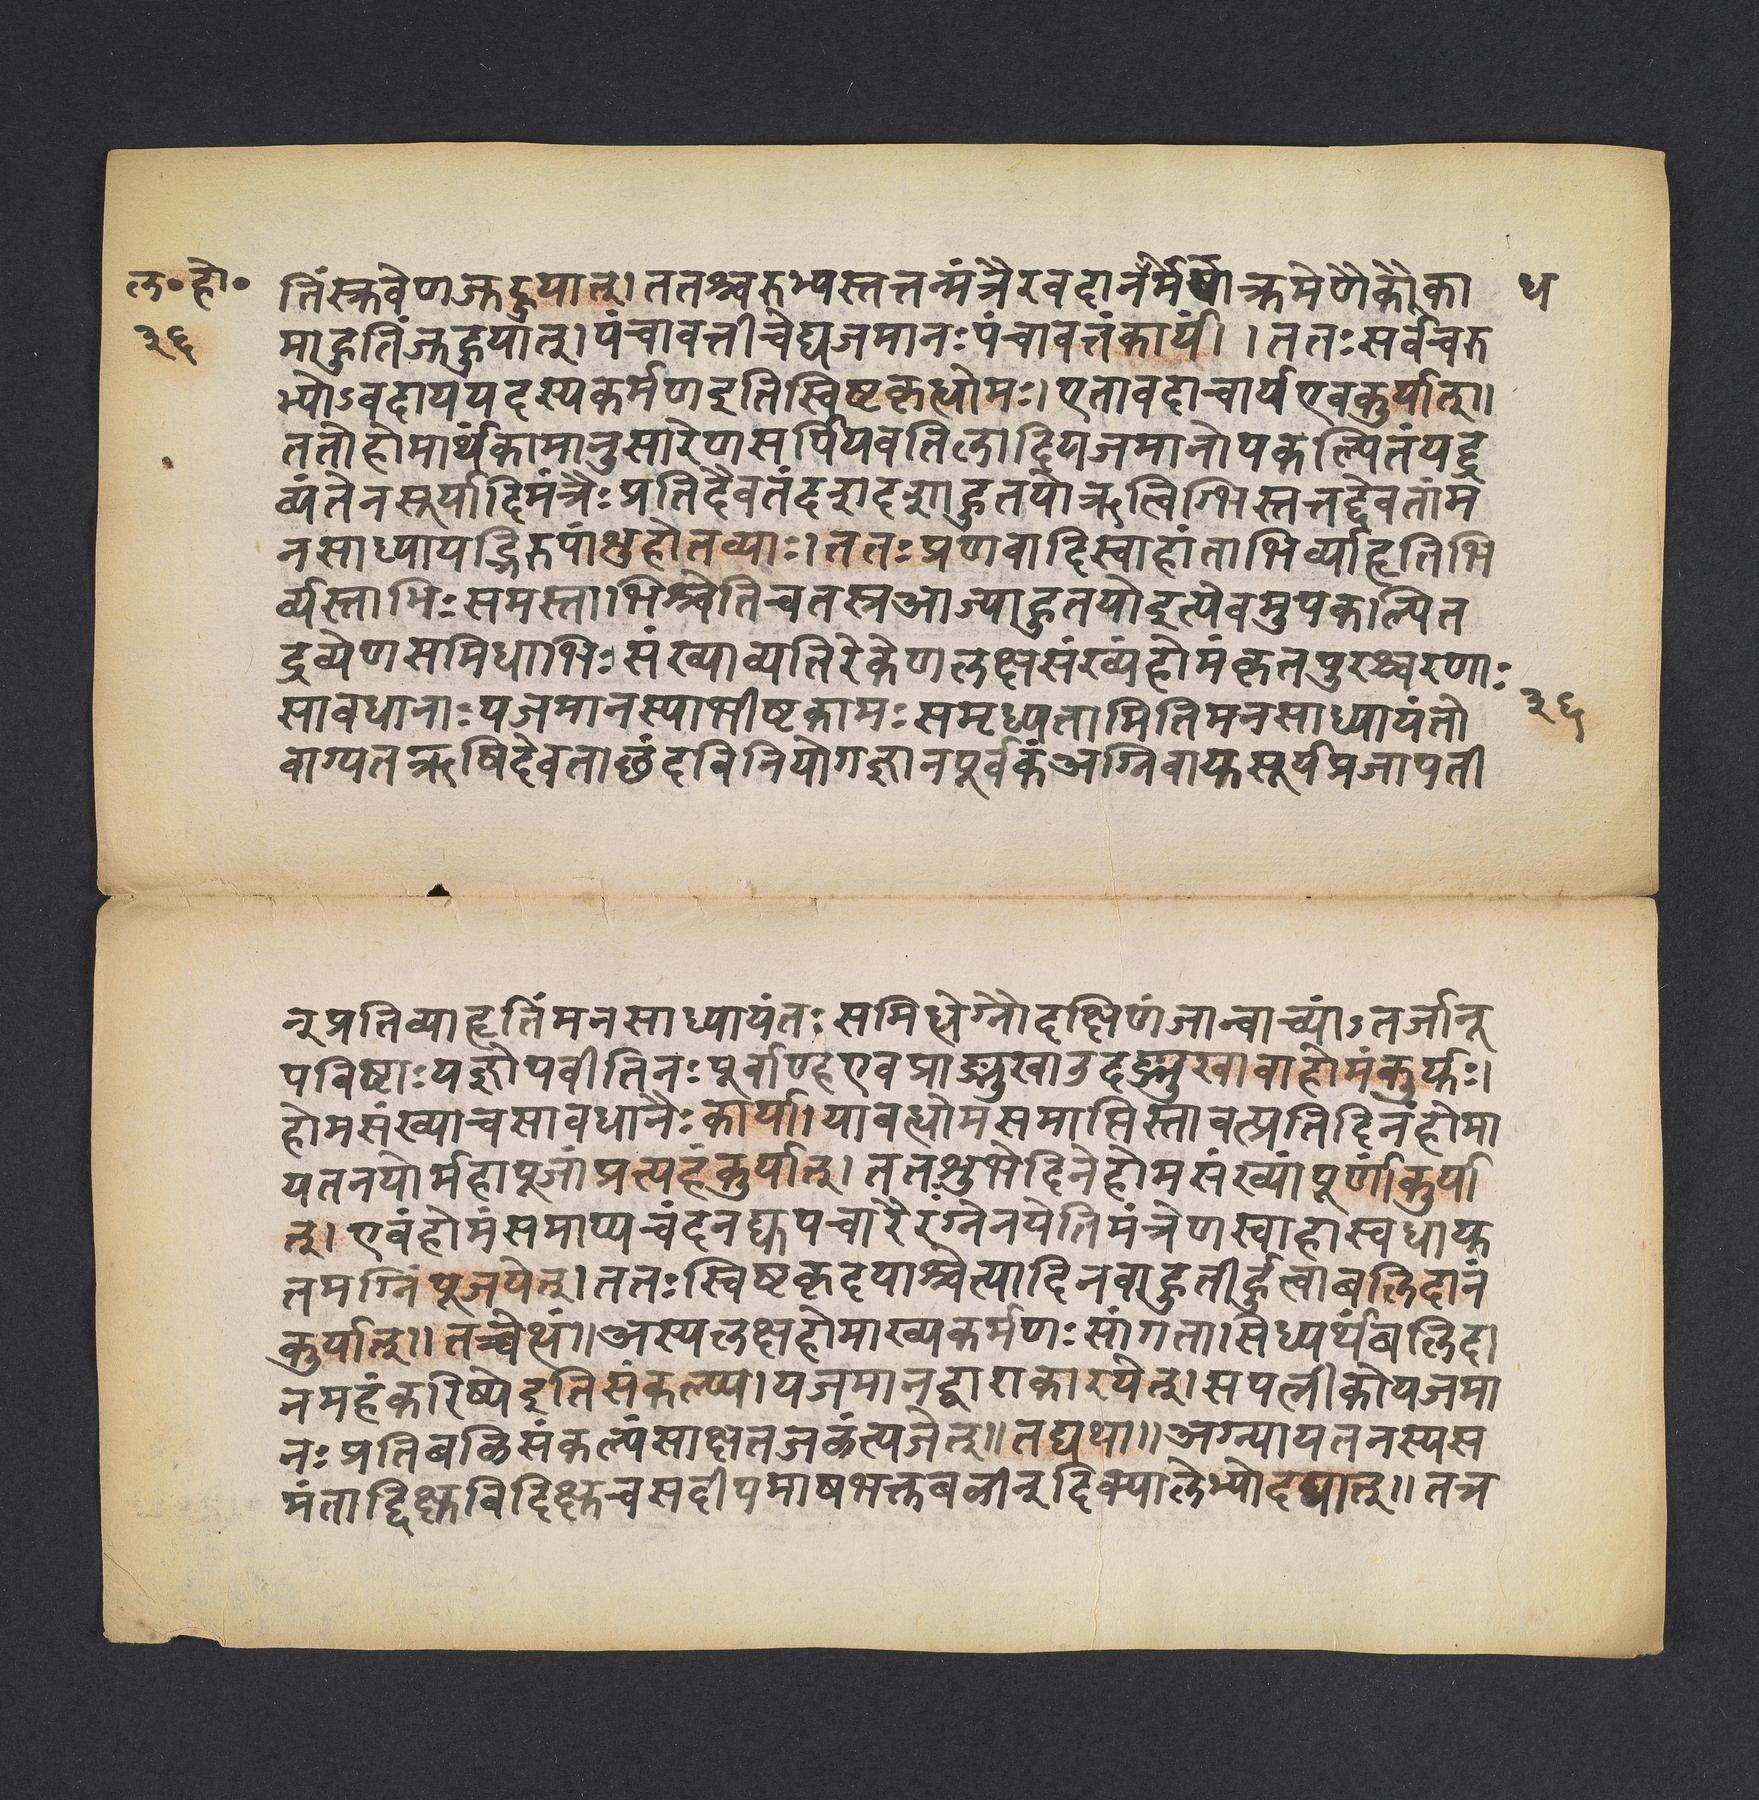 ल॰हो॰
३६
तिंस्रुवेणजुहुयात्। ततश्चरुभ्यस्तत्तन्मंत्रैरवदानधर्मेणक्रमेणैकैका
मा हुतिंजुहुयात्। पंचावत्तीचेद्यजमानःपंचावत्तंकार्यं। । ततःसर्वचरु
भ्योऽवदाययदस्यकर्मणइतिस्विष्टकृत्धोमः। एतावदाचार्यएवकुर्यात्॥
ततोहोमार्थकामानुसारेणसर्पिर्यवतिलादियजमानोपकल्पितंयद्द्र
व्यंतेनसूर्यादिमंत्रैःप्रतिदैवतंदशदशाहुतयोऋत्विग्भिस्तत्तद्देवतांम
नसाध्यायद्भिरुपांशुहोतव्याः। ततःप्रणवादिस्वाहांताभिर्व्याहृतिभि
र्व्यस्ताभिःसमस्ताभिश्चेतिचतस्रआज्याहुतयोइत्येवमुपकल्पित
द्रव्येणसमिधाभिःसंख्याव्यतिरेकेणलक्षसंख्यंहोमंकृतपुरश्चरणाः
सावधानाःयजमानस्याभीष्टकामःसमृध्यतामितिमनसाध्यायंतो
वाग्यतऋषिदेवताछंदविनियोगज्ञानपूर्वकंअग्निवायुसूर्यप्रजापती
३६
न्प्रतिव्याहृतिंमनसाध्यायंतःसमिधेग्नौदक्षिणंजान्वाच्यांऽतर्जानू
पविष्टाःयज्ञोपवीतिनःपूर्वाण्हएवप्राङ्मुखाउदङ्मुखावाहोमंकुर्युः।
होमसंख्याचसावधानैःकार्या। यावत्धोमसमाप्तिस्तावत्प्रतिदिनंहोमा
यतनयोर्महापूजांप्रत्यहंकुर्यात्। ततःशुभेदिनेहोमसंख्यांपूर्णांकुर्या
त्। एवंहोमंसमाप्यचंदनद्युपचारैरग्नेनयेतिमंत्रेणस्वाहास्वधायु
तमग्निंपूजयेत्। ततःस्विष्टकृदयाश्चेत्यादिनवाहुतीर्हुत्वाबलिदानं
कुर्यात्॥ तच्चेत्थं॥ अस्यलक्षहोमाख्यकर्मणःसांगतासिध्यर्थंबलिदा
नमहंकरिष्येइतिसंकल्प्य। यजमानद्वाराकारयेत्। सपत्नीकोयजमा
नःप्रतिबलिसंकल्पंसाक्षतजलंत्यजेत्॥ तद्यथा॥ अग्न्यायतनस्यस
मंताद्दिक्षुविदिक्षुचसदीपमाषभक्तबलीन्दिक्पालेभ्योदद्यात्॥ तत्र